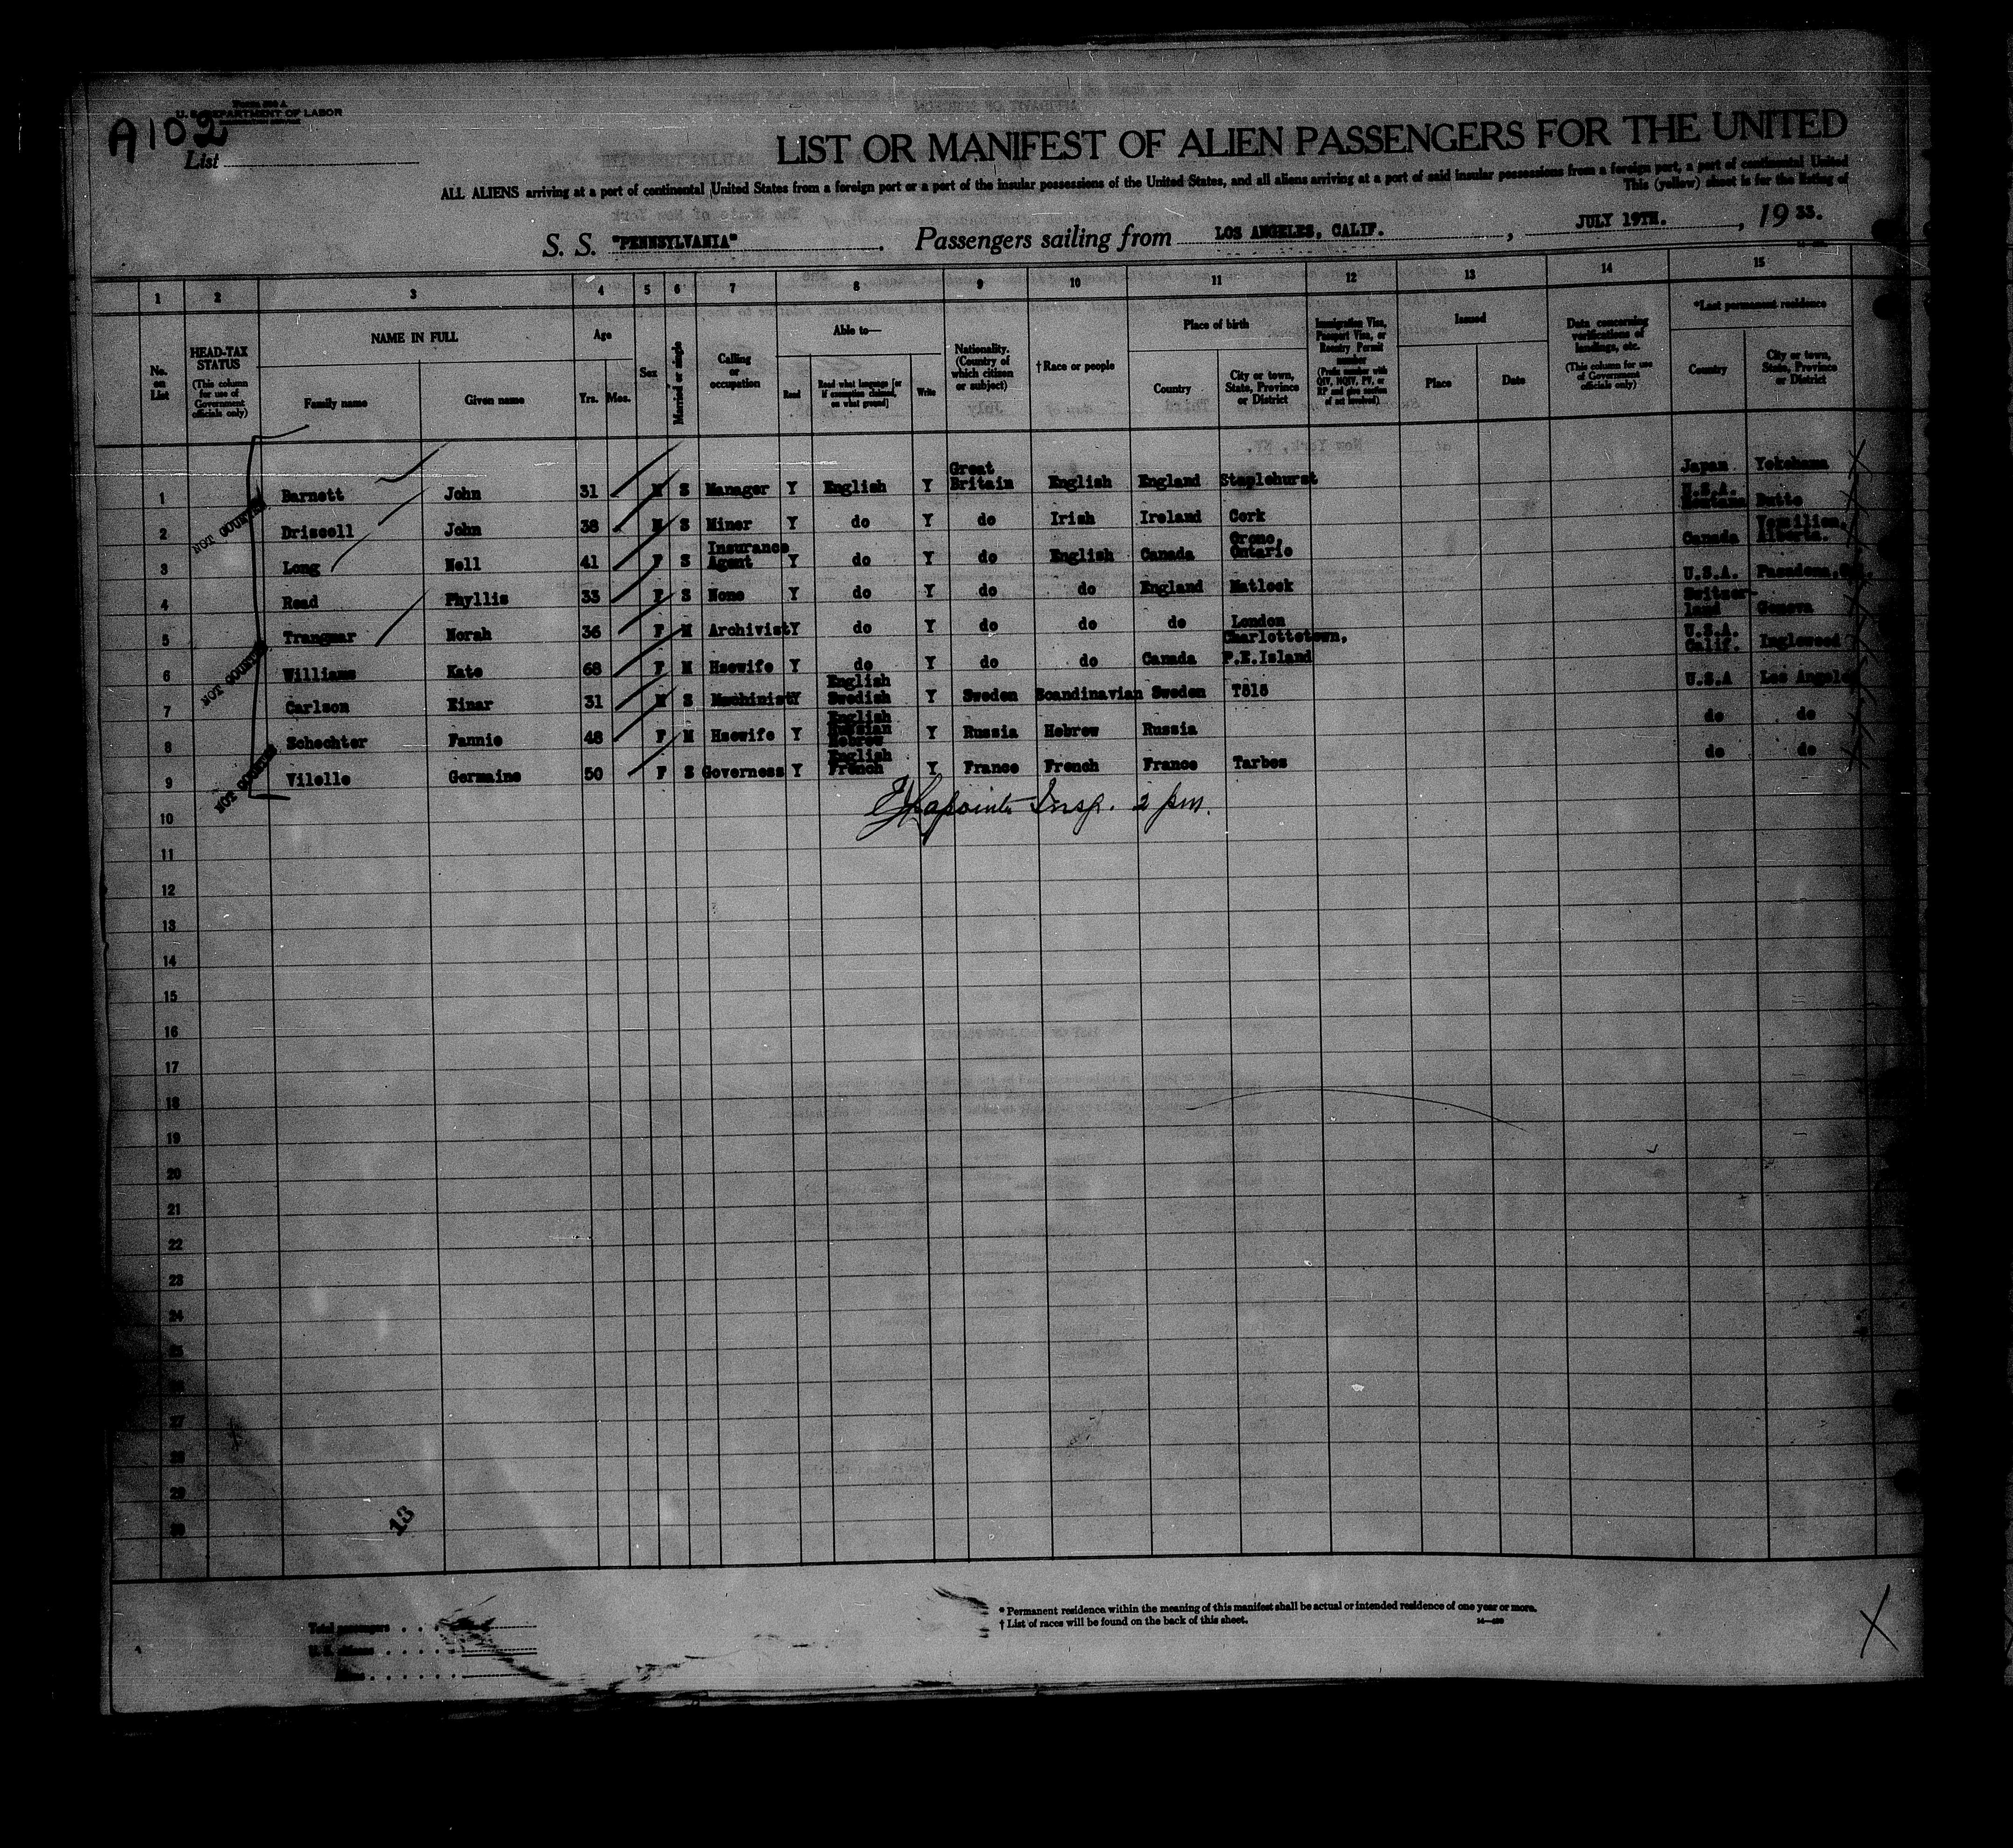 A102
U. S. DEPARTMENT OF LABOR
List
LIST OR MANIFEST OF ALIEN PASSENGERS FOR THE UNITED
ALL ALIENS arriving at a port of continental United States from a foreign port or a port of the insular possessions of the United States, and all aliens arriving at a port of said insular possessions from a foreign port, a port of continental United
This (yellow) sheet is for the listing of
S. S. "PENNSYLVANIA". Passengers sailing from LOS ANGELES, CALIF., JULY 19TH., 1933.
1 2 3 4 5 6 7 8 9 10 11 12 13 14 15
No. on List
HEAD-TAX STATUS (This column for use of Government officials only)
NAME IN FULL
Family name Given name
Age
Yrs. Mos.
Sex
Married or single
Calling or occupation
Able to—
Read Read what language [or if exemption claimed, on what ground] Write
Nationality. (Country of which citizen or subject)
†Race or people
Place of birth
Country City or town, State, Province or District
Immigration Visa, Passport Visa, or Reentry Permit number (Prefix number with QIV, NQIV, PV, or RP and give section of act involved)
Issued
Place Date
Data concerning verifications of landings, etc. (This column for use of Government officials only)
*Last permanent residence
Country City or town, State, Province or District
NOT COUNTED
NOT COUNTED
NOT COUNTED
1 Barnett John 31 M S Manager Y English Y Great Britain English England Staplehurst Japan Yokohama
2 Driscoll John 38 M S Miner Y do Y do Irish Ireland Cork U.S.A. Montana Butte
3 Long Nell 41 F S Insurance Agent Y do Y do English Canada Orono, Ontario Canada Alberta.
4 Read Phyllis 33 F S None Y do Y do do England Matlock U.S.A. Pasadena,
5 Trangmar Norah 36 F M Archivist Y do Y do do do London Switzerland Geneva
6 Williams Kate 68 F M Hsewife Y do Y do do Canada Charlottetown, P.E.Island U.S.A. Calif. Inglewood
7 Carlson Einar 31 M S Machinist Y English Swedish Y Sweden Scandinavian Sweden U.S.A Los Angeles
8 Schechter Fannie 48 F M Hsewife Y English Russian Hebrew Y Russia Hebrew Russia do do
9 Vilelle Germaine 50 F S Governess Y English French Y France French France Tarbes do do
Insp. 2 pm.
10
11
12
13
14
15
16
17
18
19
20
21
22
23
24
25
26
27
28
29
30
13
Total passengers
U. S. citizens
Aliens
* Permanent residence within the meaning of this manifest shall be actual or intended residence of one year or more.
† List of races will be found on the back of this sheet.